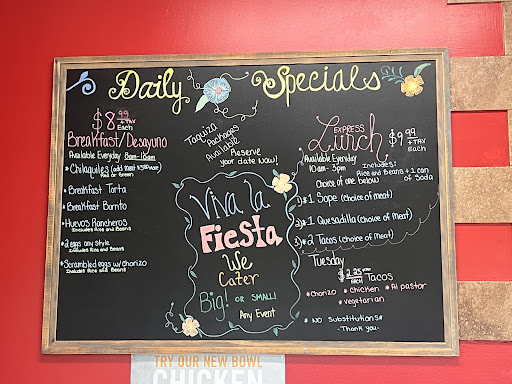 Daily Specials
$8.99 +TAX Each
Breakfast/Desayuno
Available Everyday 8am-11am
*Chilaquiles (add meat
Red or Green
*Breakfast Torta
*Breakfast Burrito
*Huevos Rancheros
Includes Rice and Beans
*2 eggs any style
Includes Rice and Beans
*Scrambled eggs w/ Chorizo
Includes Rice and Beans
Taquiza
Packages
Available
Reserve
your date Now!
Viva la
Fiesta
We
Cater
Big! OR SMALL!
Any Event
EXPRESS
Lunch $9.99 +TAX Each
Available Everyday
10am - 3pm
Choice of one below
Includes:
Rice and Beans + 1 can
of Soda
1) #1 Sope (choice of meat)
2) #1 Quesadilla (choice of meat)
3) #2 Tacos (choice of meat)
Tuesday
$2.25 EACH Tacos
*Chorizo *Chicken *Al pastor
*vegetarian
* NO Substitutions
-Thank you-
TRY OUR NEW BOWL
CHICKEN